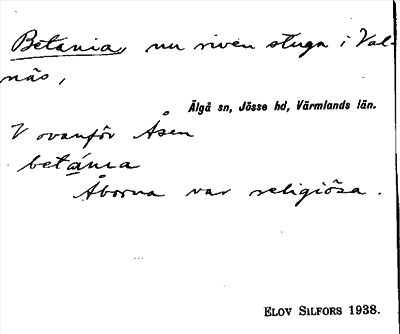 Betania, nu riven stuga i Val-
näs,
Älgå sn, Jösse hd, Värmlands län.
V ovanför Åsen
betánia
Åborna var religiösa.
ELOV SILFORS 1938.